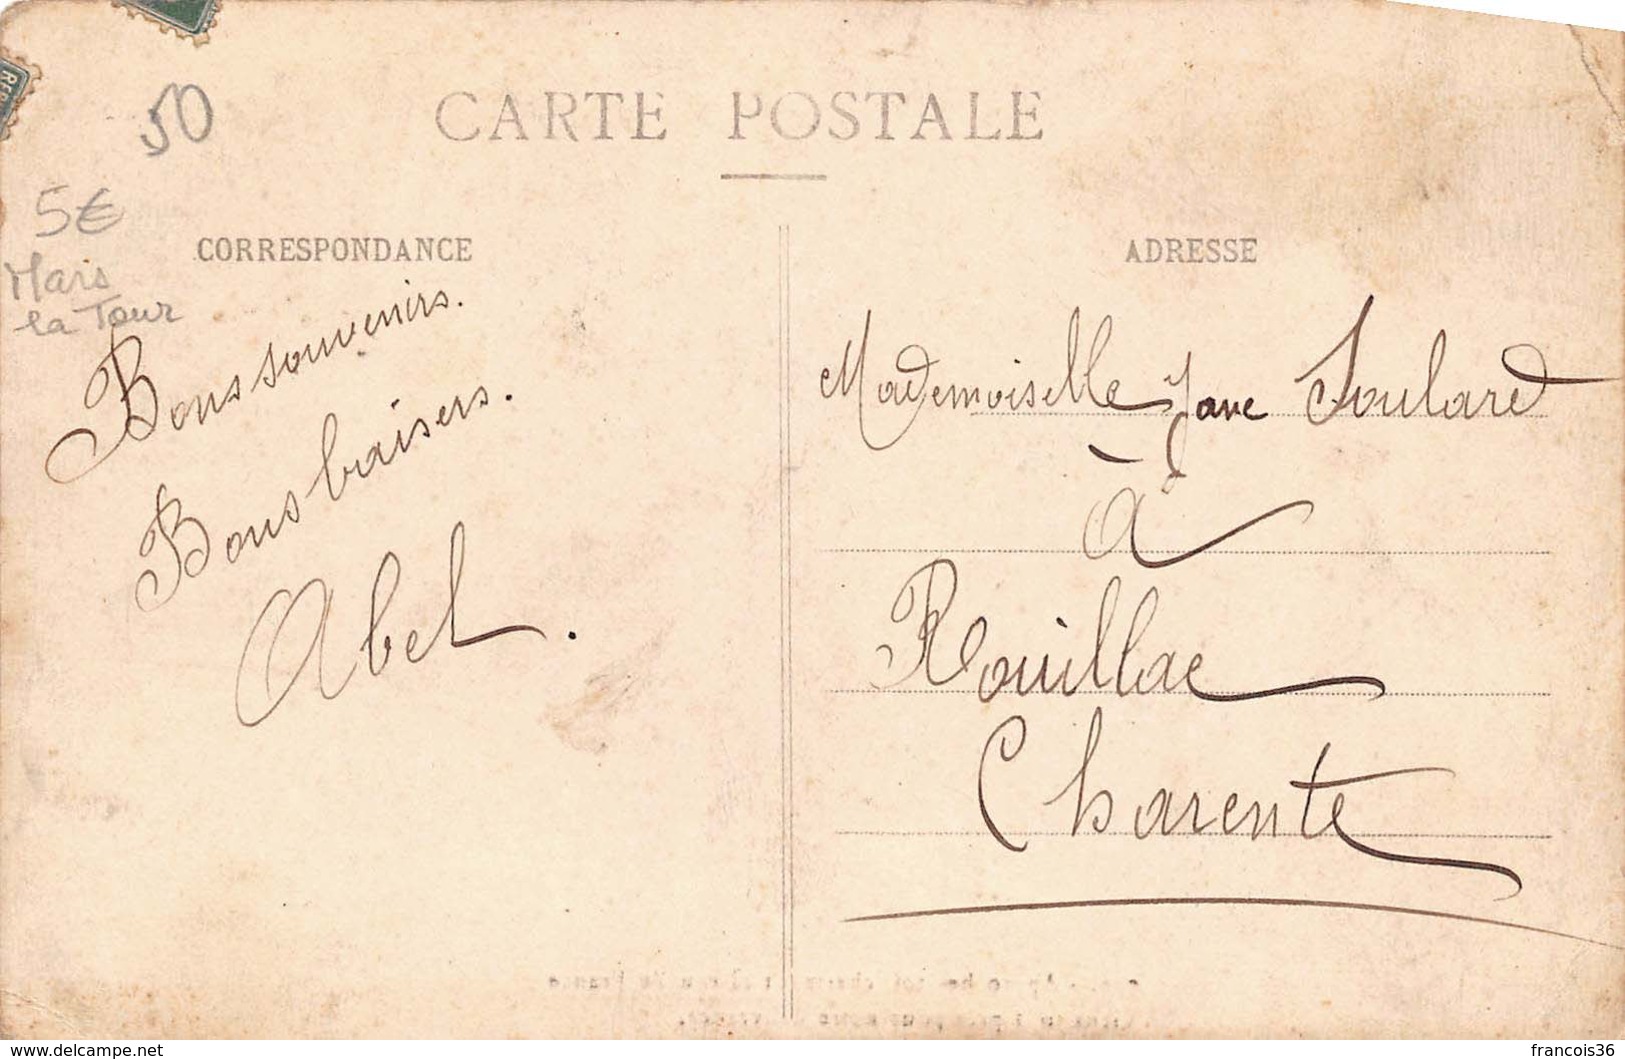 50
CARTE POSTALE
5€
Mars
la Tour
CORRESPONDANCE
Bons souvenirs.
Bons baisers.
Abel.
ADRESSE
Mademoiselle Jane Soulard
à
Rouillac
Charente
www.delcampe.net
francois36